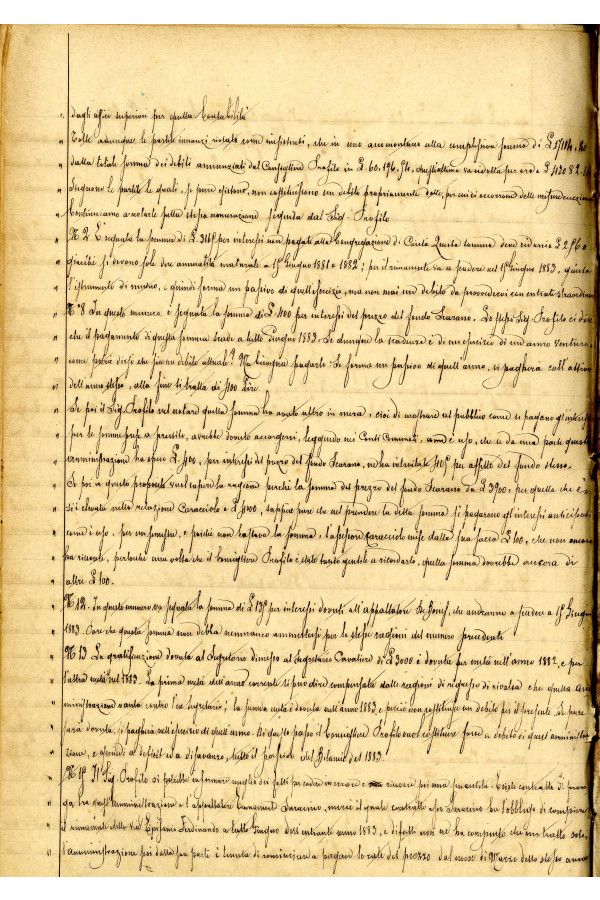 dagli uffici superiori per quella Contabilità
Tolte adunque le partite innanzi notate come insistenti, che in uno ammontano alla complessiva somma di £ 17114.
dalla totale somma dei debiti annunziati dal Consigliere Profilo in £. 60.196.94, quest'ultima va ridotta per ora a £ 42082
Seguono le partite le quali, se pure esistono, non costituiscono un debito propriamente detto, per cui occorrono delle
Continuiamo a notarle sulla stessa numerazione seguita dal Sig. Profilo
N. 2 È segnata la somma di £. per interessi non pagati alla Congregazione di Carità. Questa somma deve ridursi a £ 256.
giacché si devono sole due annualità maturate a 15 Giugno 1881 e 1882; per il rimanente va a scadere nel 15 Giugno 1883, giusta
l'istrumento di mutuo, e quindi forma un passivo di quell'esercizio, ma non mai un debito da provvedervi con entrate straordinarie
N. 8 In questo numero è segnata la somma di £. 400 per interessi del prezzo del fondo Scarano. Lo stesso Sig. Profilo ci dice
che il pagamento di questa somma scade a tutto Giugno 1883. Se dunque la scadenza è di esercizio di un anno venturo,
come potrà dirsi che sia un debito attuale? Ma bisogna pagarlo. Se forma un passivo di quell'anno, si pagherà coll'attivo
dell'anno stesso, alla fine si tratta di 400 lire.
Se poi il Sig. Profilo nel notare quella somma ha avuto altro in mira, cioè di mostrare al pubblico come si pagano gl'interessi
per le somme prese a prestito, avrebbe dovuto accorgersi, leggendo nei Conti Comunali, come è uso, che se da una parte questa
amministrazione ha speso £. 400, per interessi del prezzo del fondo Scarano, ne ha introitate per affitto del fondo stesso.
Se poi a questo proposito vuol sapere la ragione perché la somma del prezzo del fondo Scarano da £ 3900, per quella che è
si è elevata nella relazione Caracciolo a £ 4000, sappia pure che nel prendere la detta somma si pagarono gl'interessi anticipati
come è uso, per un semestre, e poiché non bastava la somma, l'assessore Caracciolo mise dalla sua sacca £. 100, che non ancora
ha ricevute, pertanto una volta che il Consigliere Profilo è stato tanto gentile a ricordarlo, quella somma dovrebbe ancora di
altre £ 100.
N. 12. In questo numero va segnata la somma di £. per interessi dovuti all'appaltatore che andranno a scadere a 15 Giugno
1883. Pare che questa somma non debba nemmanco ammettersi per le stesse ragioni del numero precedente
N. 13 La gratificazione dovuta al Segretario dimesso al Segretario Cavaliere di £ 3000 è dovuta per metà nell'anno 1882, e per
l'altra metà nel 1883. La prima metà dell'anno corrente si può dire compensata dalle ragioni di regresso di rivalsa che questa am
ministrazione vanta contro l'ex segretario; la seconda metà è dovuta nell'anno 1883, e perciò non costituisce un debito pel presente. Se pure
sarà dovuta, si pagherà nell'esercizio di quell'anno. A questo passo il Consigliere Profilo vuol costituire forse a debito di quest'amministra
zione, e quindi a deficit ed a disavanzo, tutto il passivo del Bilancio del 1883.
N. 15 Il Sig. Profilo si potrebbe informare meglio dei fatti per cadere poi una smentita. Esiste contratto di proro
ga tra quest'Amministrazione e l'appaltatore Emmanuele Saracino, mercè il quale contratto esso Saracino ha l'obbligo di compiere
il rimanente della Via Epifanio Ferdinando a tutto Giugno dell'entrante anno 1883, e difatti non ne ha compiuto che un tratto solo,
l'amministrazione poi dalla sua parte è tenuta di cominciare a pagare le rate del prezzo dal mese di Marzo dello stesso anno